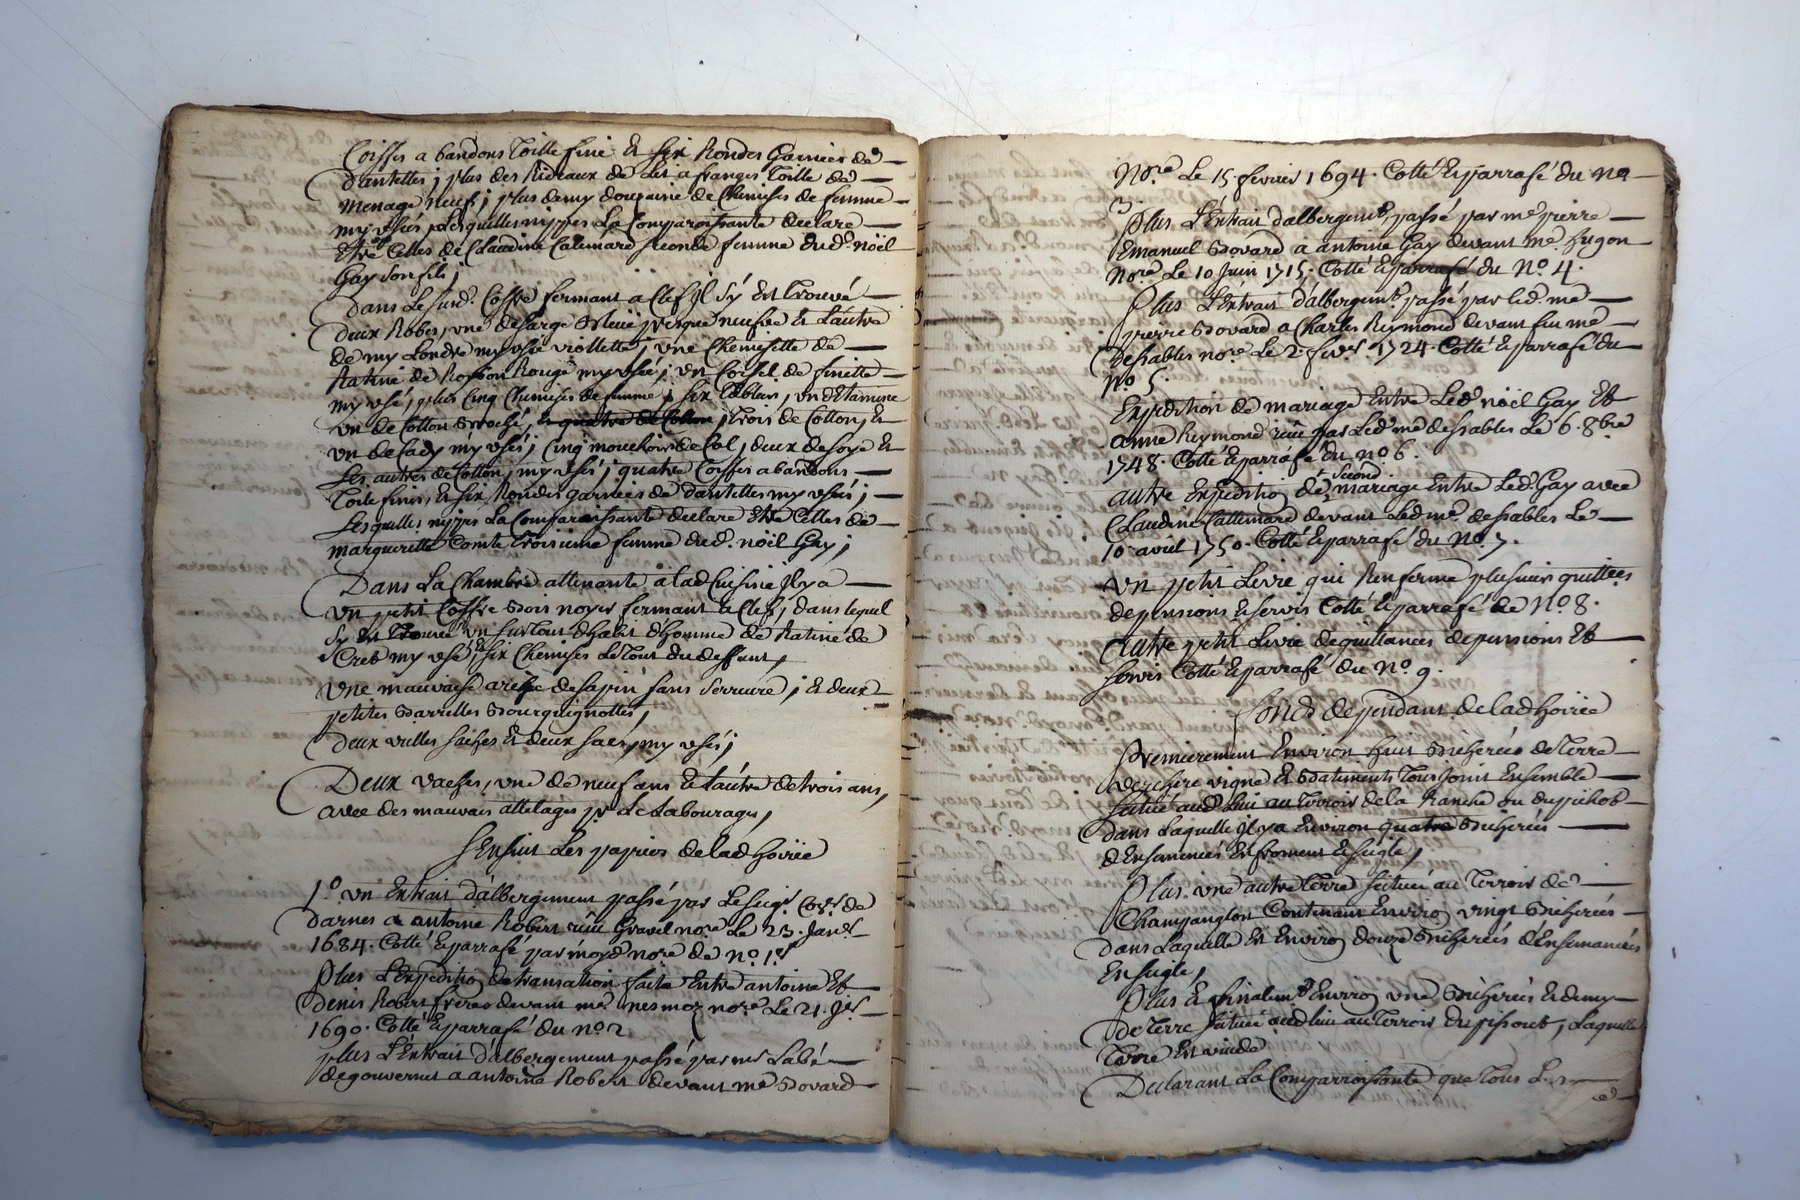 Coiffes a bandons Toille fine & six Rondes Garnies de
Dantelles; plus des Rideaux de Lit a franges Toille de
menage neufs; plus demy douzaine de Chemises de femme
my usés; Lesquelles nippes La Comparoissante declare
Etre Celles de Claudine Calemard seconde femme dud.t noël
Gay son fils;
Dans Le surd. Coffre fermant a Clef Il s'y Est Trouvé
deux Robes, une de sarge Bleüe presque neufve & L'autre
de my Londre my usée viollette, une Chemisette de
Ratine de Rouge my usée; un Corset de finette
my usé; plus Cinq Chemises de femme; six Tabliers, un d'Etamine
un de Cotton Broché, & quatre de Cotton, Trois de Cotton, &
un de Cady my usés; Cinq mouchoirs de Col; deux de soye &
Les autres de Cotton, my usés; quatre Coiffes a bandons
Toile fine, & six Rondes garnies de dantelles my usés;
Lesquelles nippes La Comparoissante declare Etre Celles de
margueritte Comte Troisieme femme dud. noël Gay;
Dans La Chambre attenante a lad Cuisine Il y a
un petit Coffre Bois noyer fermant a Clef; dans lequel
s'y Est Trouvé un surTout d'habit d'homme de Ratine de
my usé, & six Chemises Le Tout du deffunt,
une mauvaise de sapin sans serrure; & deux
petites Barrilles Bourguignottes,
Deux & deux sacs, my usés;
Deux vaches, une de neuf ans & L'autre de trois ans,
avec des mauvais attelages pr Le Labourage,
S'Ensuit Les papiers de lad hoirie
1.o un Extrait d'albergement passé par Le seig.r de
Darnes a antoine Robert reçu Gravel no.re Le 23. Jan.er
1684. Cotté & parrafé par moyd no.re de N.o 1.er
Plus L'Expeditio de transation faite Entre antoine Et
Denis Robert freres devant me no.re Le 21. J.er
1690. Cotté & parrafé du no 2
plus L'Extrait d'albergement passé par mr Labé
de gouvernet a antoine Robert devant me Bovard
No.re Le 15. fevrier 1694. Cotté & parrafé du No
3
Plus L'Extrait d'albergem.t passé par me pierre
Emanuel Bovard a antoine Gay devant me. hugon
No.re Le 10 Juin 1715. Cotté & parrafé du N.o 4.
Plus L'Extrait d'albergem.t passé par led me
pierre Bovard a Charles Reymond devant feu me
Dessables no.re Le 2. fev.er 1724. Cotté & parrafé du
no 5.
Expedition de mariage Entre Led. noël Gay Et
anne Reymond reçu par Led me dessables Le 6. 8bre
1748. Cotté & parrafé du no 6.
second
autre Expeditio de mariage Entre Led. Gay avec
Claudine Callemard devant Led me. dessables Le
10 avril 1750. Cotté & parrafé du No. 7.
un petit Livre qui Renferme plusieurs quittces
de pensions & servis Cotté & parrafé de No. 8.
Autre petit Livre de quittances de pensions Et
servis Cotté & parrafé du No. 9.
fonds dependant de lad hoirie
Premierement Environ huit Bicherées de Terre
vigne & Batiments Tous Joint Ensemble
situé aud. Lieu au Terroir de la Ranche ou du
dans Laquelle Il y a Environ quatre Bicherées
d'Ensemencés En froment & seigle,
Plus. une autre Terre située au Terroir de
Champanglon Contenant Enviro vingt Bicherées
dans Laquelle Est Enviro douze Bicherées d'Ensemencées
En seigle,
Plus & finalem.t Enviro une Bicherée & demy
de Terre située aud lieu au Terroir du, Laquelle
Terre Est vuide
Declarant La Comparroissante que Tous L